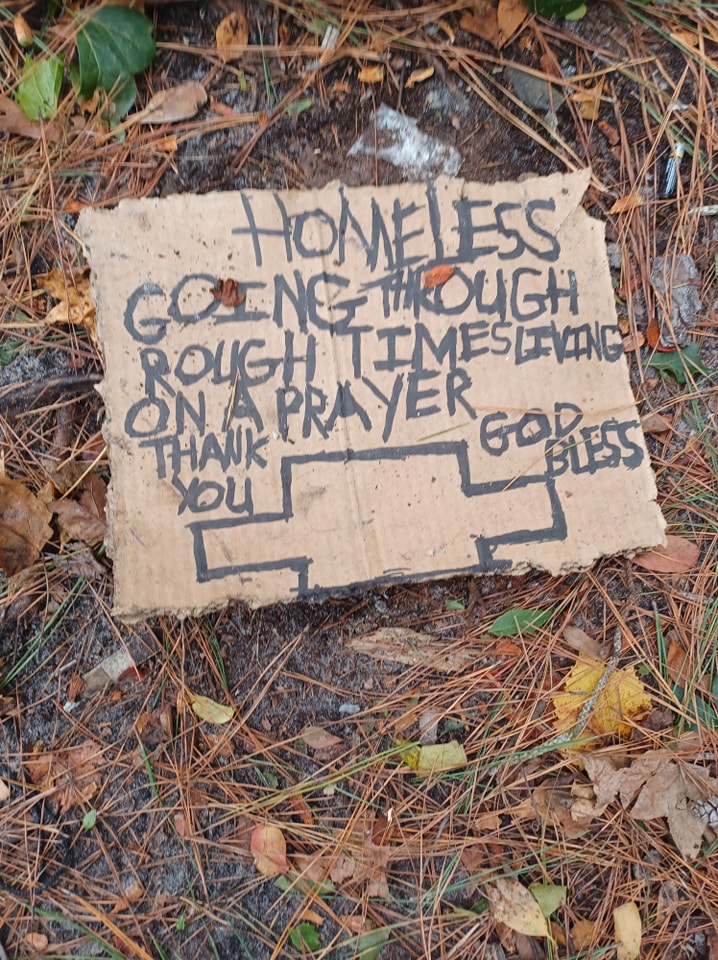 HOMELESS
GOING THROUGH
ROUGH TIMES LIVING
ON A PRAYER
THANK
YOU
GOD
BLESS